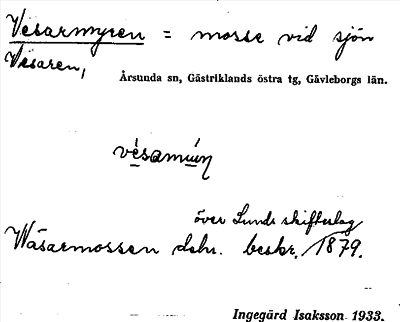 Vesarmyren = mosse vid sjön
Vesaren,
Årsunda sn, Gästriklands östra tg, Gävleborgs län.
över Lunds skifteslag
Wäsarmossen dehr. beskr. 1879.
Ingegärd Isaksson 1933.